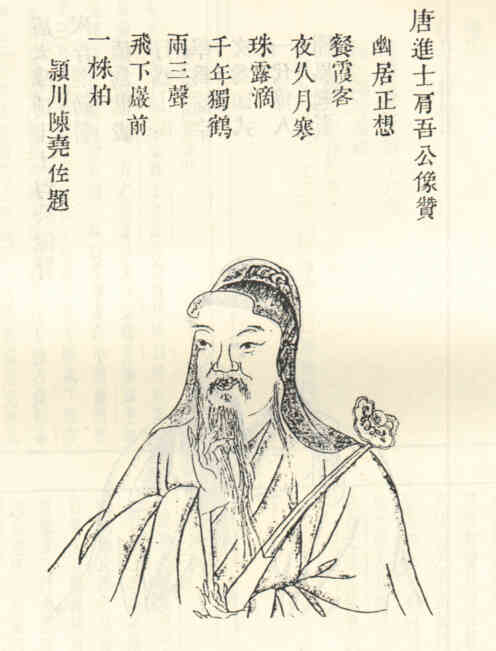 唐進士肩吾公像贊
幽居正想
餐霞客
夜久月寒
珠露滴
千年獨鶴
兩三聲
飛下巖前
一株柏
潁川陳堯佐題